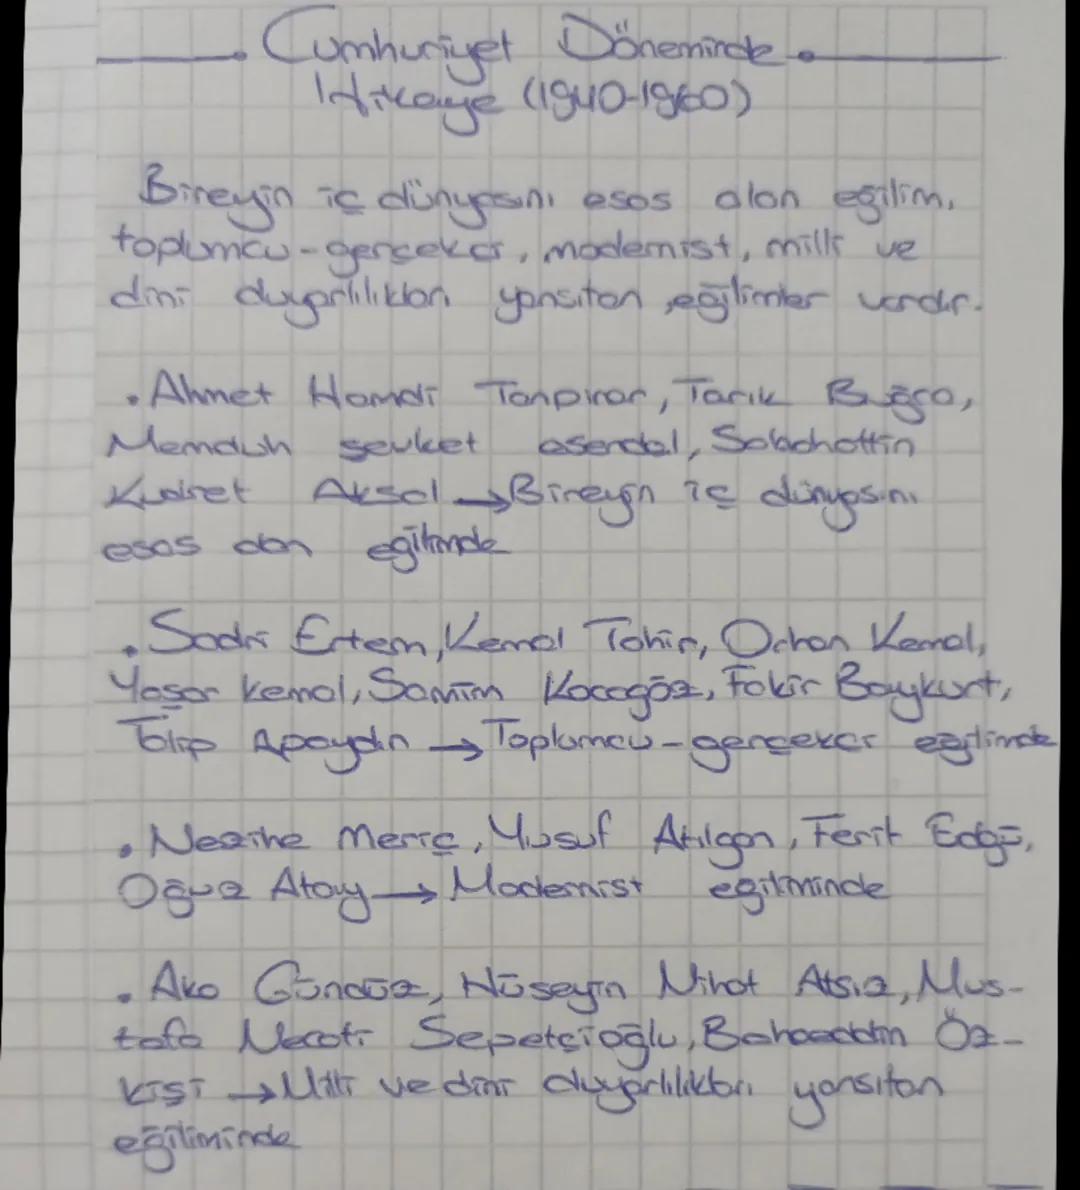 Cumhuriyet Döneminde
Hikaye (1940-1960)
Bireyin iç dünyasını esas alan eğilim,
toplumcu-gerçekçi, modernist, milli ve
dini duyarlılıkları yansıtan eğilimler vardır.
• Ahmet Hamdi Tanpınar, Tarık Buğra,
Memduh şevket esendal, Sabahattin
Kudret Aksal → Bireyin iç dünyasını
esas alan eğilimde
• Sadri Ertem, Kemal Tahir, Orhan Kemal,
Yaşar Kemal, Samim Kocagöz, Fakir Baykurt,
Talip Apaydın → Toplumcu-gerçekçi eğilimde
• Nezihe Meriç, Yusuf Atılgan, Ferit Edgü,
Oğuz Atay → Modernist eğiliminde
• Aka Gündüz, Hüseyin Nihat Atsız, Mus-
tafa Necati Sepetçioğlu, Bahaeddin Öz-
kişi → Milli ve dini duyarlılıkları yansıtan
eğiliminde